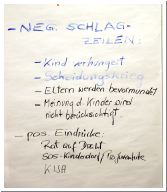 - NEG. SCHLAG-
ZEILEN:
- Kind verhungert
- Scheidungskrieg
- Eltern werden bevormundet
- Meinung d. Kinder wird
nicht berücksichtigt
- pos. Eindrücke:
Rat auf Draht
SOS-Kinderdorf /
KIJA